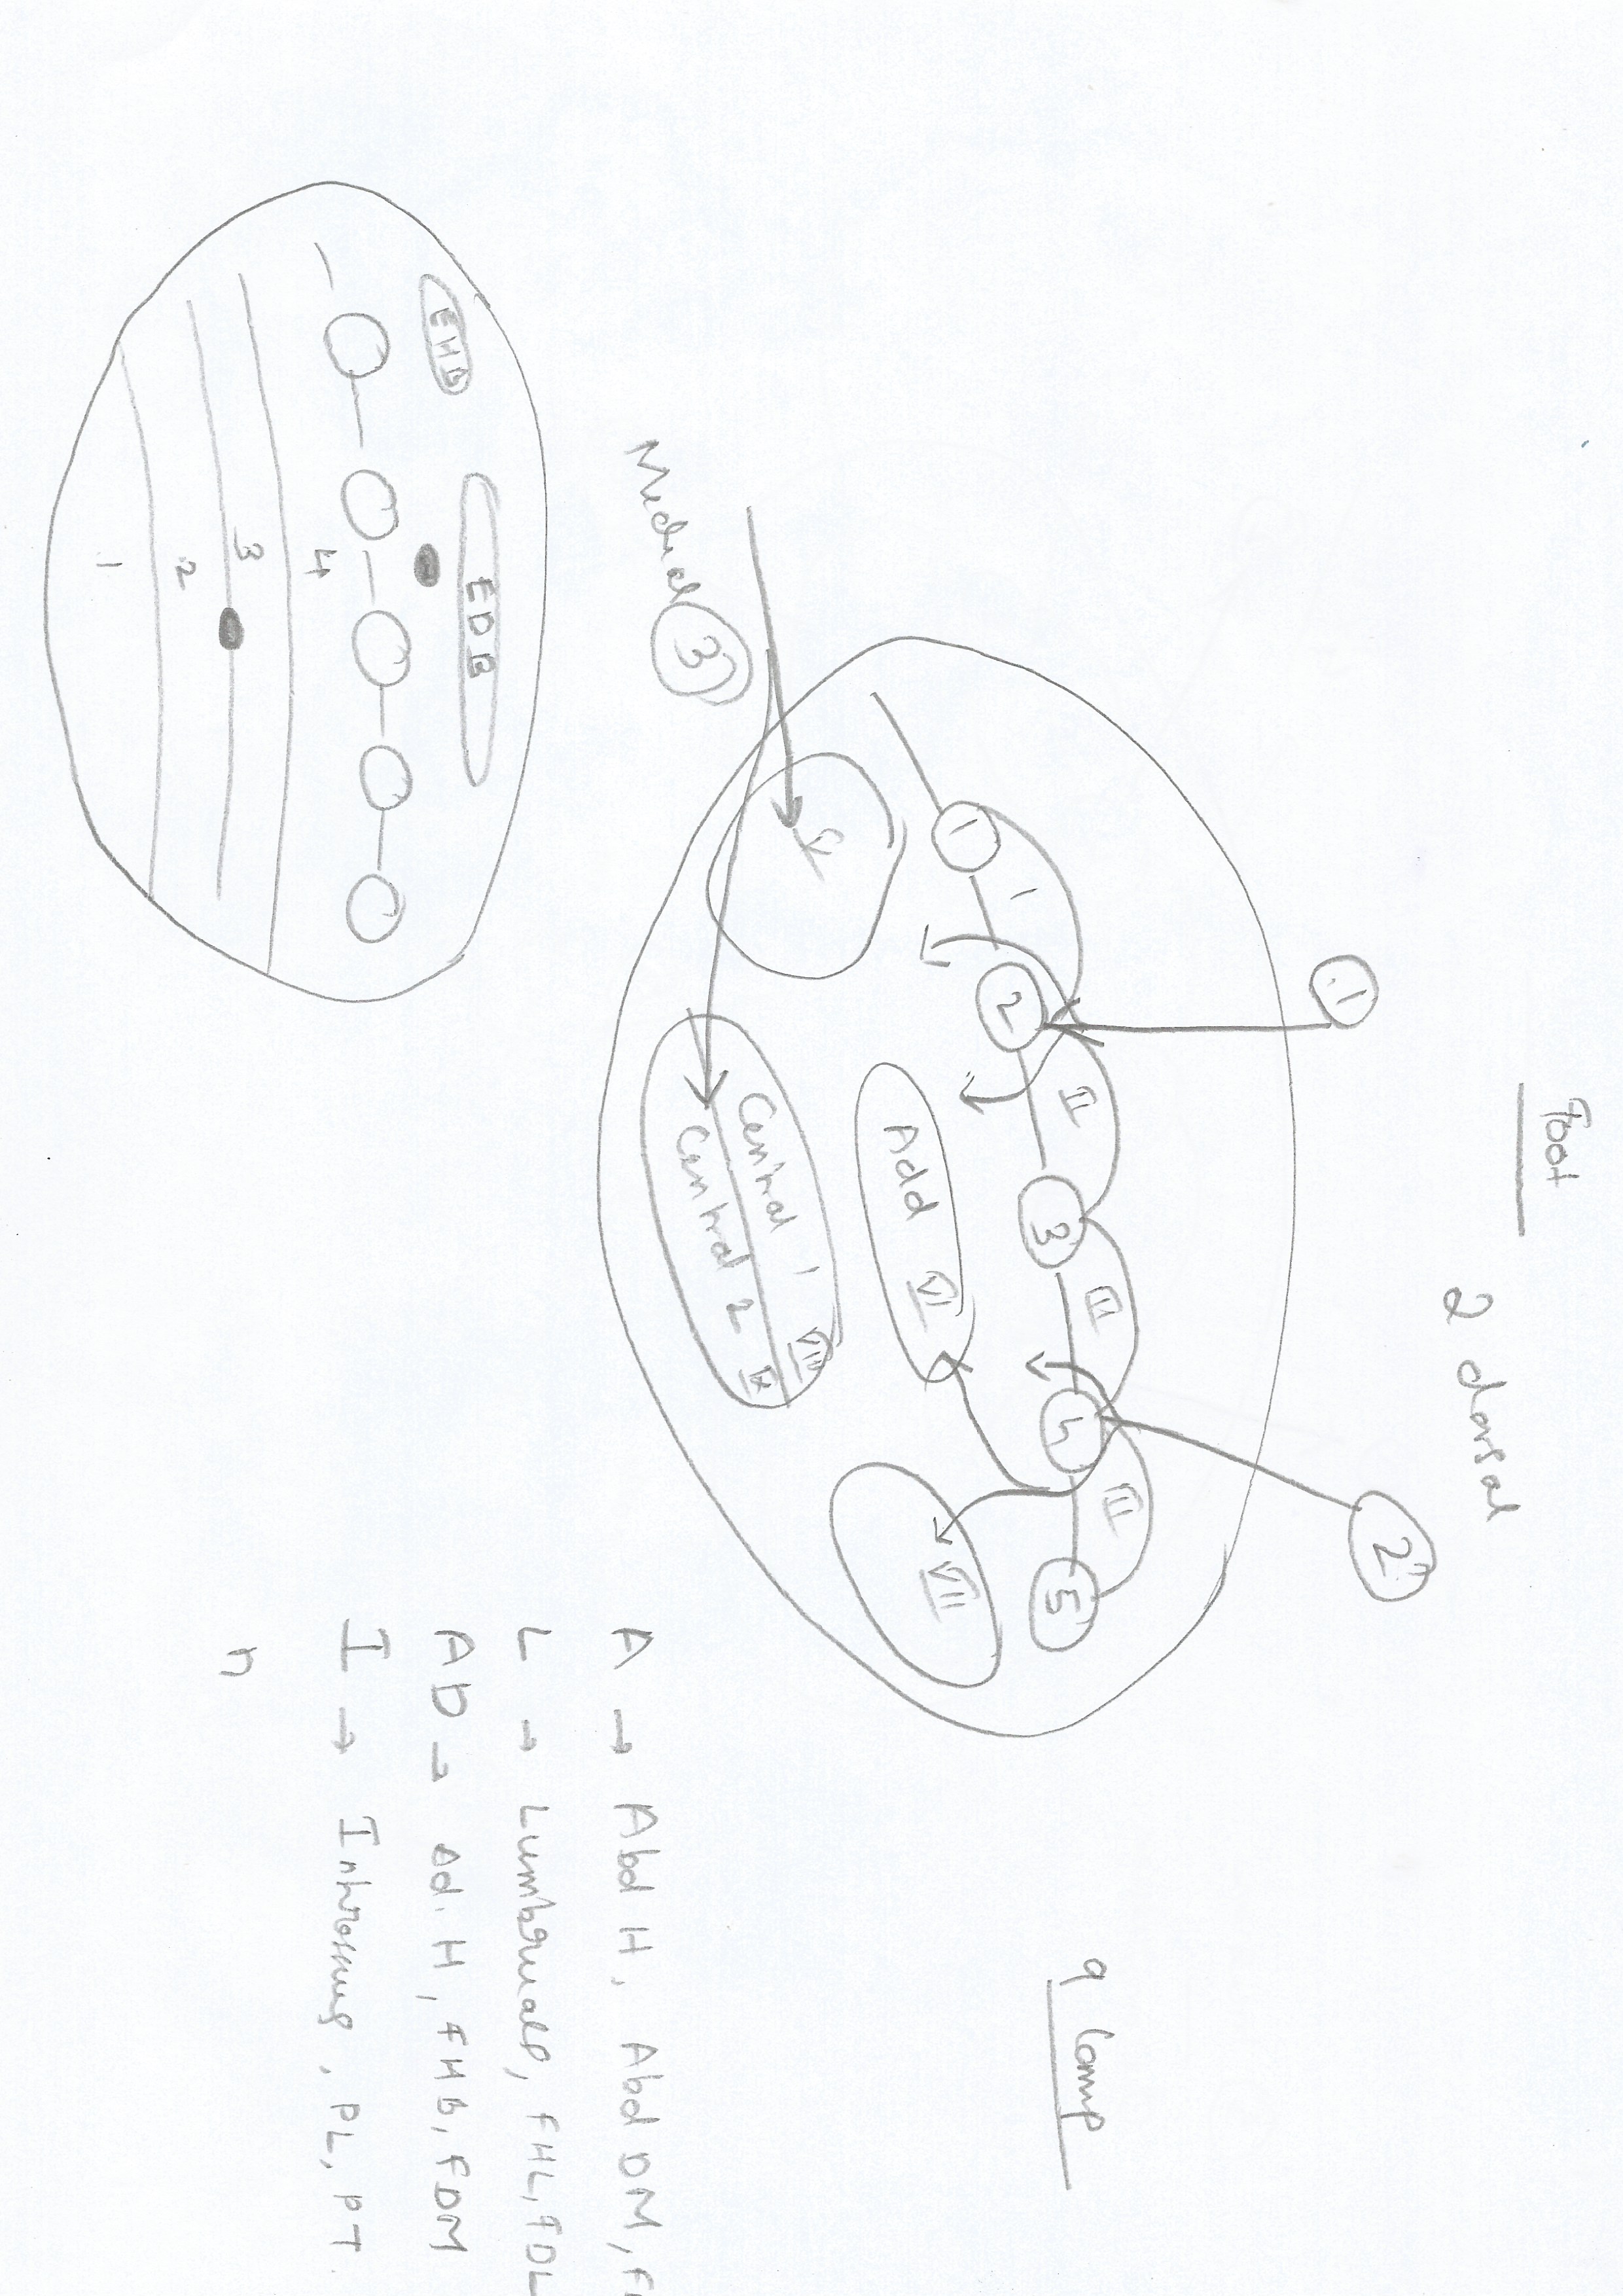 Foot
2 dorsal
1
2
9 Comp
1
2
3
4
5
1
II
III
III
Add VI
VII
V
Central 1 VIII
Central 2 IX
Medial 3
EHB
EDB
4
3
2
1
A → Abd H, Abd DM, F
L → Lumbricals, FHL, FDL
Ab → Ad. H, FHB, FDM
I → PL, PT
n